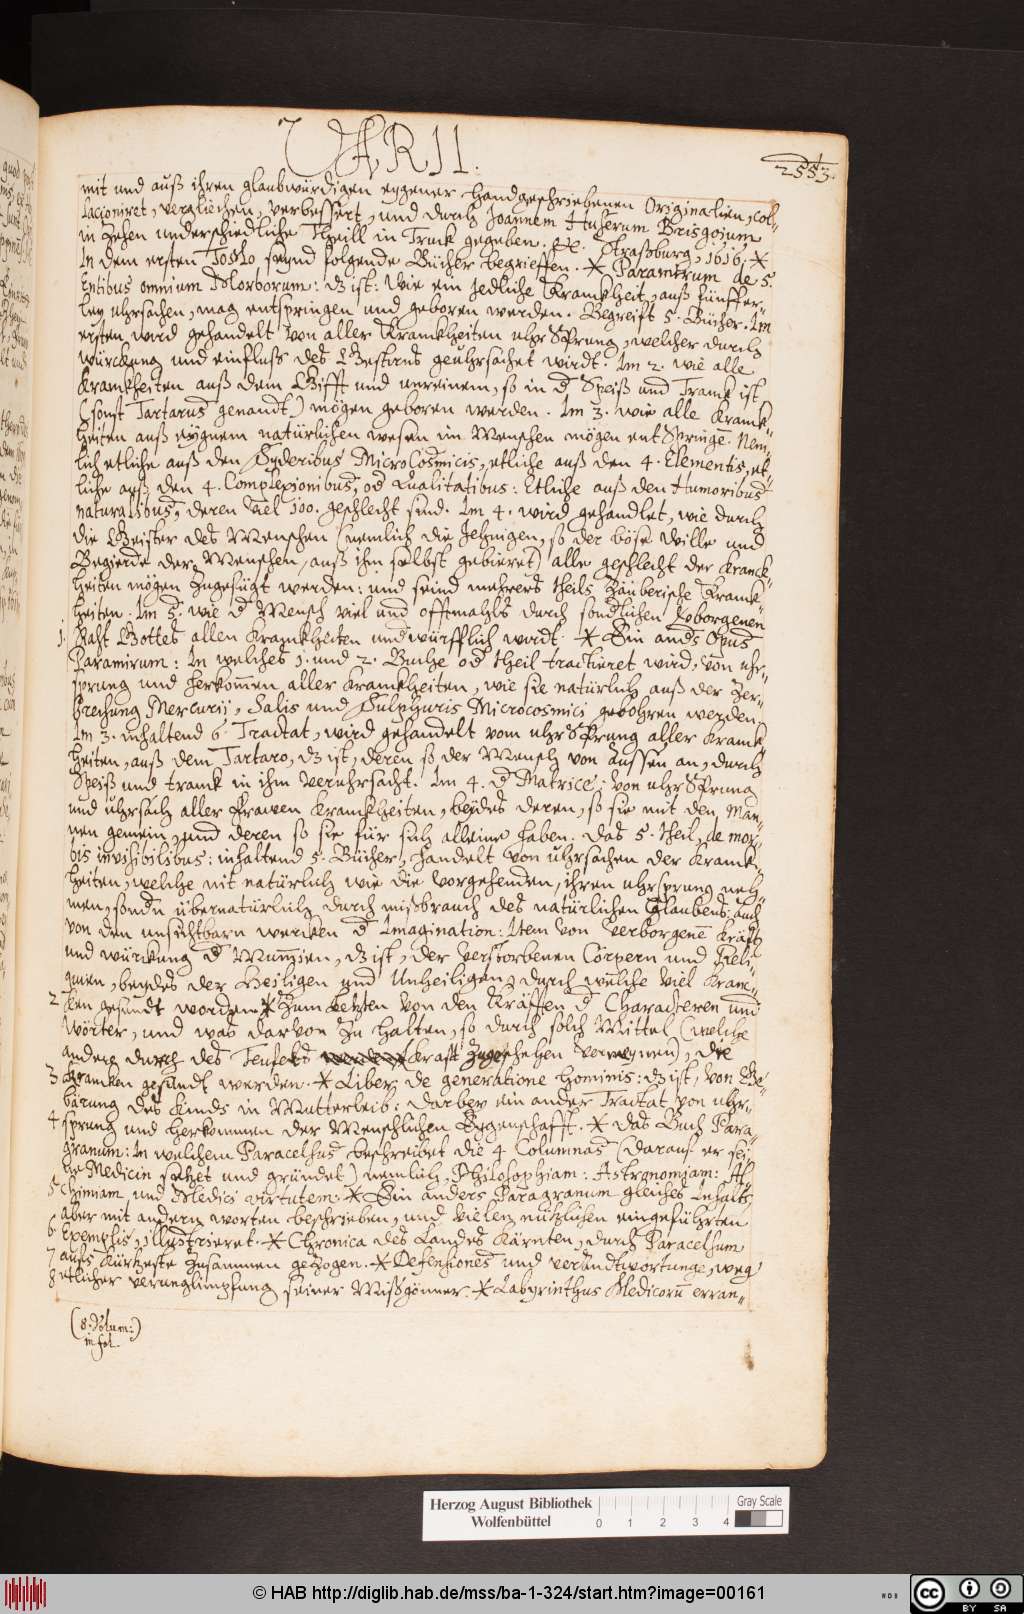 VARII.
2553.
mit und auß ihren glaubwürdigen eygener Handgeschriebenen Originalien, col-
lacioniret, vergliechen, verbessert, und durch Joannem Huserum Brisgoium
in Zehen underschiedliche Theill in Truck gegeben. Straßburg, 1616. *
In dem ersten Tomo seynd folgende Bücher begrieffen. * Paramirum de 5.
Entibus omnium Morborum: dz ist: Wie ein jedliche Kranckheit, auß fünffer-
ley uhrsachen, mag entspringen und geboren werden. Begreift 5. Bücher. Im
ersten, wird gehandelt von aller Kranckheiten uhrsprung, welcher durch
würckung und einfluss des Gestirns geuhrsachet wirdt. Im 2. wie alle
Kranckheiten auß dem Gifft und unreinem, so in d Speiß und Tranck ist,
(sonst Tartarus genandt) mögen geboren werden. Im 3. wie alle Kranck-
heiten auß eygnem natürlichen wesen im Menschen mögen entspringe. Nem-
lich etliche auß den Syderibus MicroCosmicis, etliche auß den 4. Elementis, et-
liche auß den 4. Complexionibus, od Qualitatibus: Etliche auß den Humoribus
naturalibus, deren viel 100. geschlecht sind. Im 4. wird gehandlet, wie durch
die Geister des Menschen (nemlich die Jehnigen, so der böse Wille und
Begierde der Menschen, auß ihm selbst gebieret) alle geschlecht der Kranck-
heiten mögen Zugefügt werden: und seind mehrers theils Zäuberische Kranck-
heiten. Im 5. wie d Mensch viel und offtmahls durch sondlichen Verborgenen
1. Raht Gottes allen Kranckheiten undwürfflich wirdt. * Ein anders Opus
Paramirum: In welches 1. und 2. Buche od theil tractieret wird, von uhr-
sprung und herkommen aller Kranckheiten, wie sie natürlich auß der Zer-
brechung Mercurii, Salis und Sulphuris Microcosmici gebohren werden
Im 3. inhaltend 6 Tractat, wird gehandelt vom uhrsprung aller Kranck-
heiten, auß dem Tartaro, dz ist, deren so der Mensch von Aussen an, durch
Speiß und tranck in ihm verursacht. Im 4. d Matrice, von uhrsprung
und uhrsach aller Frawen Kranckheiten, beydes deren, so sie mit den Män-
nen gemein, und deren so sie für sich alleine haben. Das 5. theil, de mor-
bis invisibilibus: inhaltend 5. Bücher, handelt von uhrsachen der Kranck-
heiten, welche nit natürlich wie die vorgehenden, ihren uhrsprung neh-
men, sondn übernatürlich durch mißbrauch des natürlichen Glaubens: auch
von den unsichtbarn wercken d Imagination: Item von verborgene Kräfft
und würckung d Mumien, dz ist, der verstorbenen Cörpern und Reli-
quien, beydes der Heiligen und Unheiligen, durch welche viel Kranc-
2 ken gesundt worden. * Zum letzten von den Kräfften d Characteren und
Wörter, und was darvon zu halten, so durch solch Mittel (welche
andere durch des Teufels Krafft Zugeschehen vermeynen), die
3 Krancken gesundt werden. * Liber de generatione hominis: dz ist, von Ge-
bärung des Kinds in Mutterleib: darbey ein ander Tractat von uhr-
4 sprung und herkommen der Menschlichen Eygenschafft. * Das Buch Para-
granum: In welchem Paracelsus beschreibet die 4 Columnas (darauf er sei-
ne Medicin setzet und gründet) nemlich, Philosophiam: Astronomiam: Al-
5 chimiam, und Medici virtutem. * Ein anders Paragranum gleiches Inhalts
aber mit andern worten beschrieben, und vielen nützlichen eingeführten
6 Exemplis, illustrieret. * Chronica des Landes Kärnten, durch Paracelsum
7 aufs Kürtzeste Zusammen gezogen. * Defensiones und verandtwortunge, weg
8 etlicher verunglimpfung seiner Mißgönner. * Labyrinthus Medicorū erran-
(8. Volum:)
in fol.
Herzog August Bibliothek
Wolfenbüttel
0 1 2 3 4
Gray Scale
© HAB http://diglib.hab.de/mss/ba-1-324/start.htm?image=00161
cc BY SA